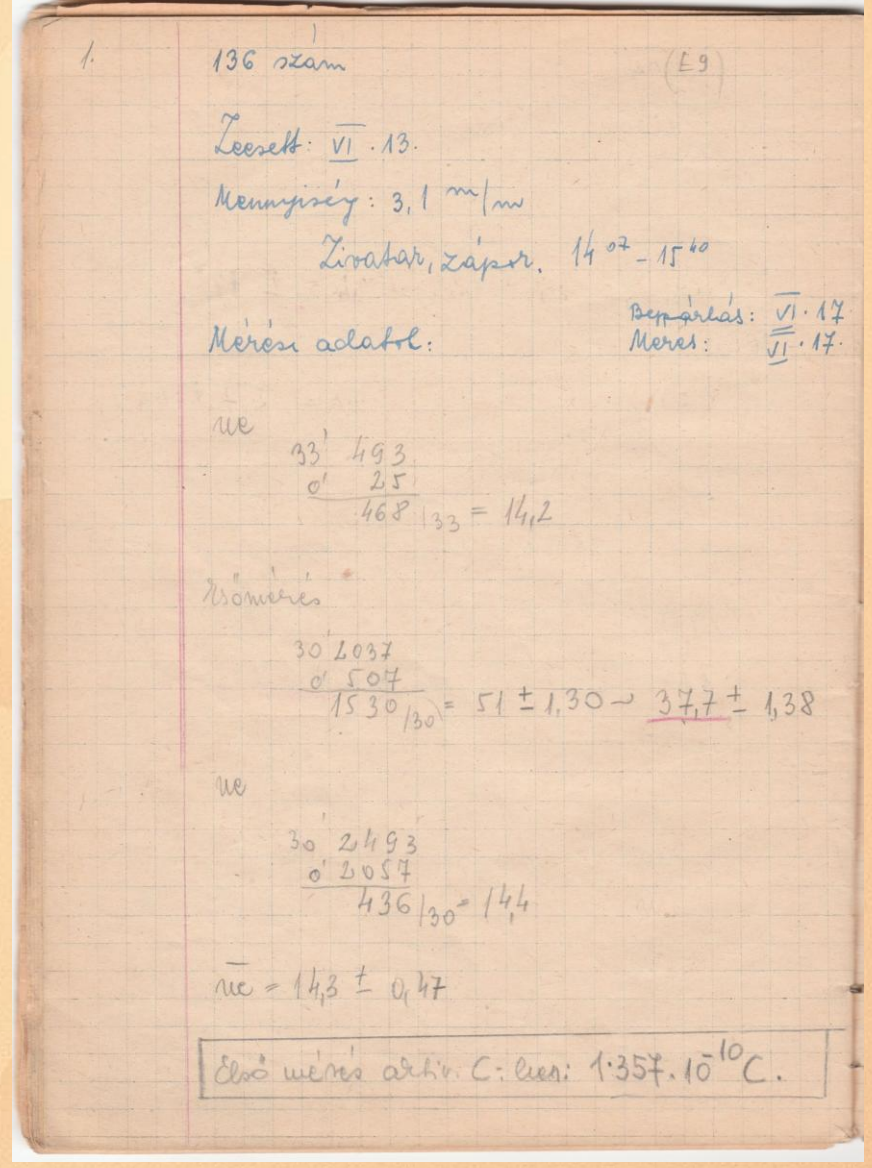 1.
136 szám (E9)
Leesett: VI. 13.
Mennyiség: 3,1 m/m
Zivatar, zápor. 14 07 - 15 40
Bepárlás: VI. 17
Mérési adatok: Meres: VI. 17.
ne
33' 493
0' 25
468/33 = 14,2
Esőmérés
30' 2037
0' 507
1530/30 = 51 ± 1,30 ~ 37,7 ± 1,38
ne
30' 2493
0' 2057
436/30 = 14,4
ne = 14,3 ± 0,47
Első mérés aktiv. C-ben: 1·357.10-10 C.